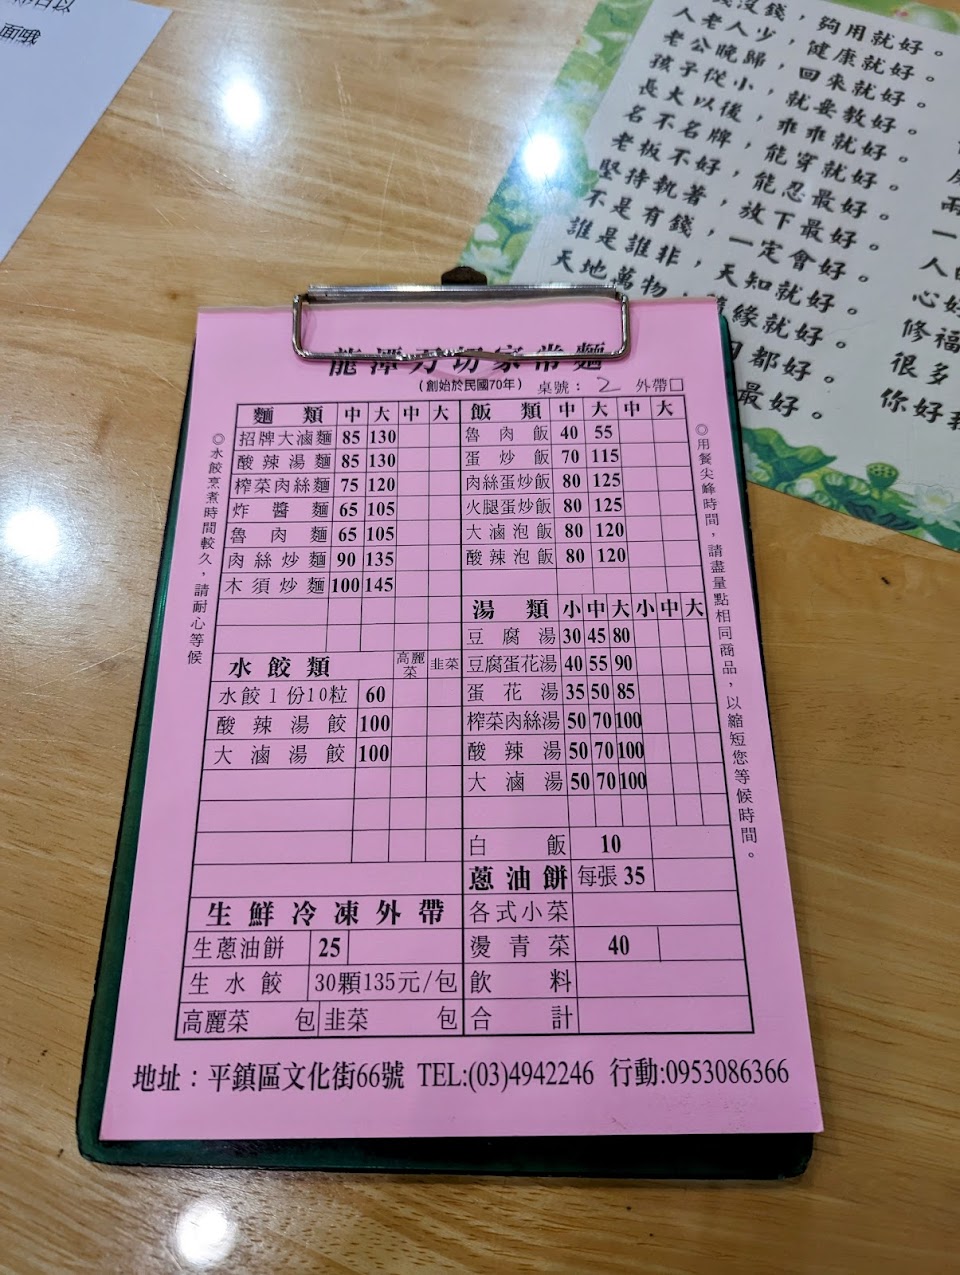 面哦
錢沒錢，夠用就好。
人老人少，健康就好。
老公晚歸，回來就好。
孩子從小，就要教好。
長大以後，乖乖就好。
名不名牌，能穿就好。
老板不好，能忍最好。
堅持執著，放下最好。
不是有錢，一定會好。
誰是誰非，天知就好。
天地萬物，隨緣就好。
都好。
最好。
一
人
心好
修福
很多
你好
龍潭刀切家常麵
(創始於民國70年) 桌號：2 外帶□
麵類 中 大 中 大
招牌大滷麵 85 130
酸辣湯麵 85 130
榨菜肉絲麵 75 120
炸醬麵 65 105
魯肉麵 65 105
肉絲炒麵 90 135
木須炒麵 100 145
水餃類 高麗菜 韭菜
水餃1份10粒 60
酸辣湯餃 100
大滷湯餃 100
生鮮冷凍外帶
生蔥油餅 25
生水餃 30顆135元/包
高麗菜 包 韭菜 包
飯類 中 大 中 大
魯肉飯 40 55
蛋炒飯 70 115
肉絲蛋炒飯 80 125
火腿蛋炒飯 80 125
大滷泡飯 80 120
酸辣泡飯 80 120
湯類 小 中 大 小 中 大
豆腐湯 30 45 80
豆腐蛋花湯 40 55 90
蛋花湯 35 50 85
榨菜肉絲湯 50 70 100
酸辣湯 50 70 100
大滷湯 50 70 100
白飯 10
蔥油餅 每張 35
各式小菜
燙青菜 40
飲料
合計
◎水餃烹煮時間較久，請耐心等候
◎用餐尖峰時間，請盡量點相同商品，以縮短您等候時間。
地址：平鎮區文化街66號 TEL:(03)4942246 行動:0953086366